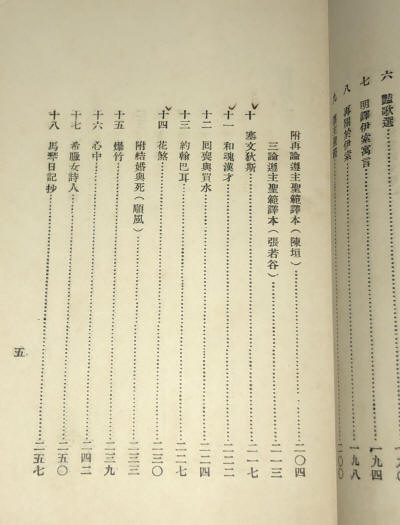 六 豔歌選 一九〇
七 明譯伊索寓言 一九四
八 再關於伊索 一九八
九 遵主聖範 二〇〇
附再論遵主聖範譯本（陳垣） 二〇四
三論遵主聖範譯本（張若谷） 二一三
十 塞文狄斯 二一七
十一 和魂漢才 二二二
十二 回喪與買水 二二四
十三 約翰巴耳 二二七
十四 花煞 二三〇
附結婚與死（順風） 二三三
十五 爆竹 二三九
十六 心中 二四二
十七 希臘女詩人 二五〇
十八 馬琴日記抄 二五七
五